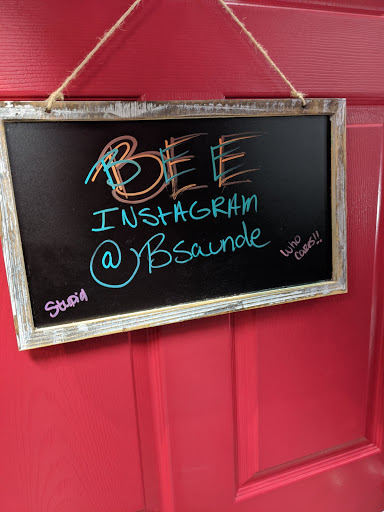 BEE
INSTAGRAM
@Bsaunde
Stupid
Who
cares!!